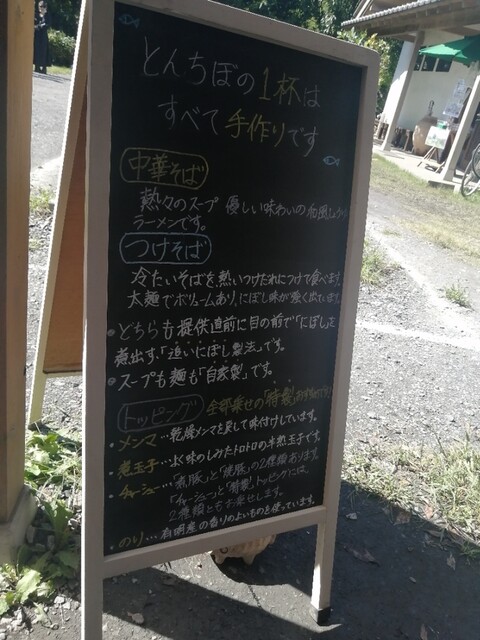 とんちぼの1杯は
すべて手作りです
中華そば
熱々のスープ 優しい味わいの和風しょうゆ
ラーメンです。
つけそば
冷たいそばを熱いつけだれにつけて食べます。
太麺でボリュームあり、にぼし味が強く出ています。
どちらも提供直前に目の前で「にぼし」を
煮出す、「追いにぼし製法」です。
スープも麺も「自家製」です。
トッピング 全部乗せの「特製」
・メンマ…乾燥メンマを戻して味付けしています。
・煮玉子…味のしみたトロトロの半熟玉子です。
・チャーシュー…「煮豚」と「焼豚」の2種類あります。
「チャーシュー」と「特製」トッピングには、
2種類ともお乗せします。
・のり…有明産の香りのよいものを使っています。